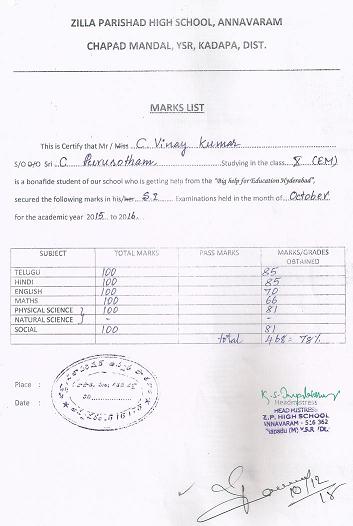 ZILLA PARISHAD HIGH SCHOOL, ANNAVARAM
CHAPAD MANDAL, YSR, KADAPA, DIST.
MARKS LIST
This is Certify that Mr / Miss C. Vinay Kumar
S/O D/O Sri C. Purusotham Studying in the class 8 (EM)
is a bonafide student of our school who is getting help from the "Big help for Education Hyderabad",
secured the following marks in his/her S.1 Examinations held in the month of October
for the academic year 2015 to 2016.
SUBJECT TOTAL MARKS PASS MARKS MARKS/GRADES OBTAINED
TELUGU 100 85
HINDI 100 85
ENGLISH 100 70
MATHS 100 66
PHYSICAL SCIENCE } 100 81
NATURAL SCIENCE - -
SOCIAL 100 81
total 468 = 78%
Place :
Date :
Headmistress
HEAD MISTRESS
Z.P. HIGH SCHOOL
ANNAVARAM - 516 362
10/12
15